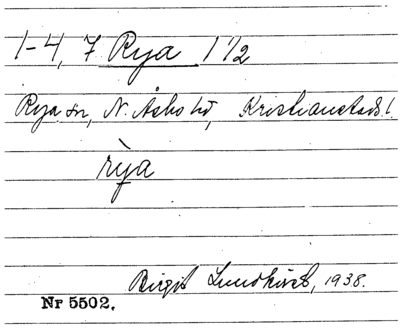 1-4, 7 Rya 1 1/2
Rya sn, N. Åsbo hd, Kristianstads l.
rỳa
Birgit Lundkvist, 1938.
Nr 5502.